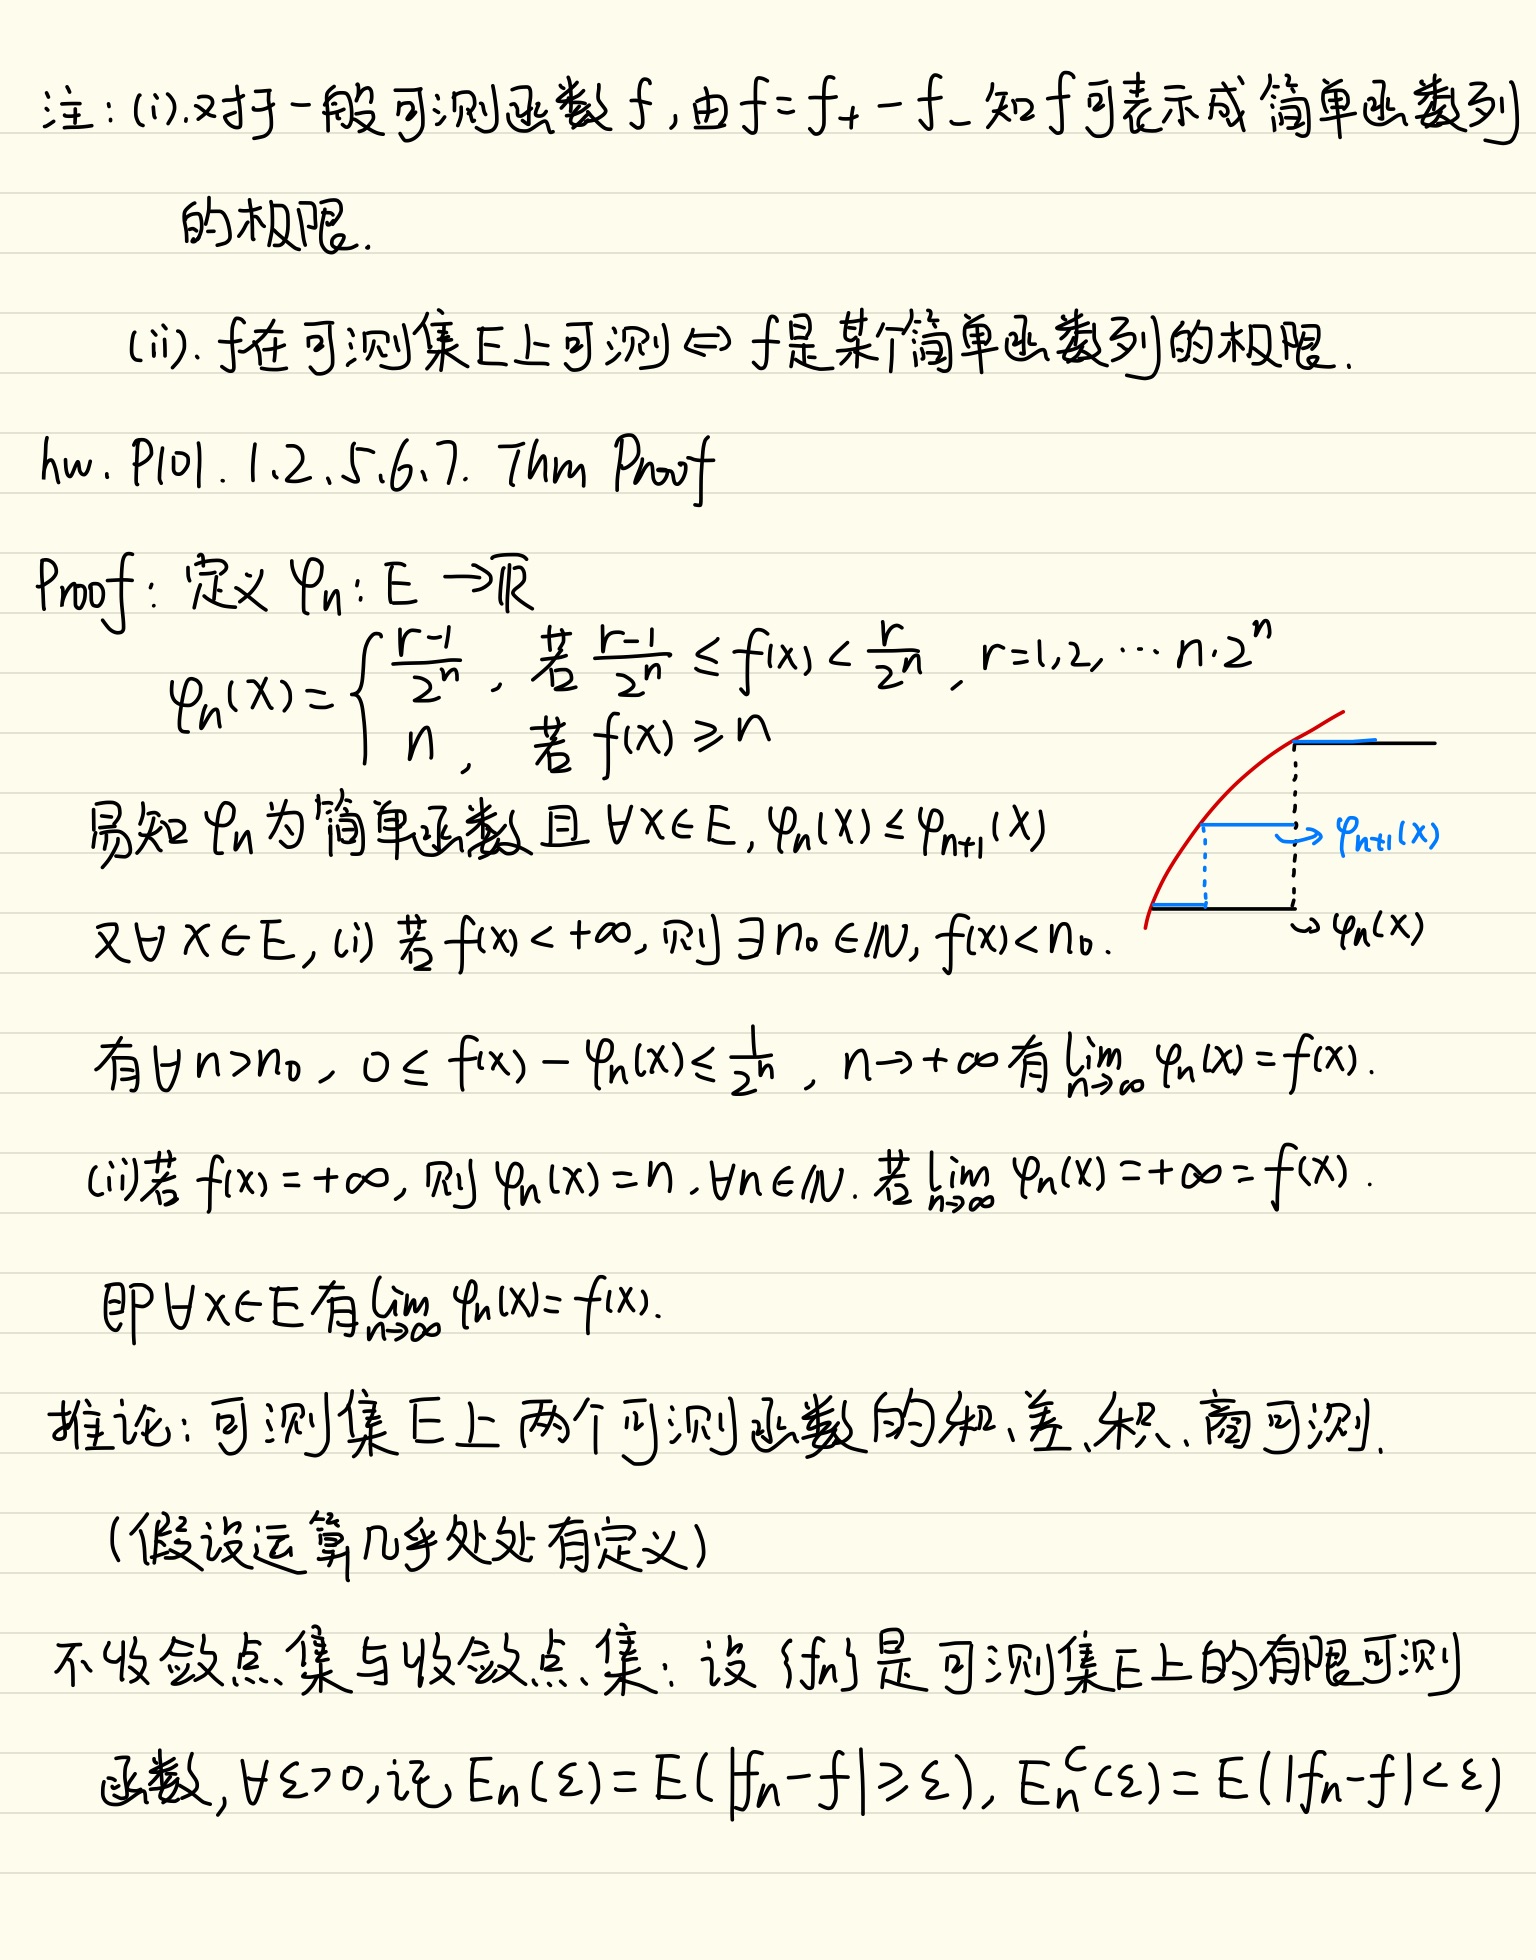 注：(i).对于一般可测函数 f，由 f = f₊ − f₋ 知 f 可表示成简单函数列
的极限.
(ii). f在可测集E上可测 ⇔ f是某个简单函数列的极限.
hw. P101. 1.2.5.6.7. Thm Proof
Proof: 定义 φₙ: E → ℝ̅
φₙ(x) = { (r−1)/2ⁿ , 若 (r−1)/2ⁿ ≤ f(x) < r/2ⁿ , r=1,2,⋯ n·2ⁿ
n , 若 f(x) ≥ n
易知 φₙ 为简单函数且 ∀x∈E, φₙ(x) ≤ φₙ₊₁(x)
φₙ₊₁(x)
φₙ(x)
又∀x∈E, (i) 若 f(x) < +∞, 则 ∃n₀∈ℕ, f(x) < n₀.
有∀n>n₀, 0 ≤ f(x) − φₙ(x) ≤ 1/2ⁿ , n→+∞ 有 lim n→∞ φₙ(x) = f(x).
(ii)若 f(x) = +∞, 则 φₙ(x) = n, ∀n∈ℕ. 若 lim n→∞ φₙ(x) = +∞ = f(x).
即∀x∈E有 lim n→∞ φₙ(x) = f(x).
推论：可测集E上两个可测函数的和、差、积、商可测.
(假设运算几乎处处有定义)
不收敛点集与收敛点集：设 {fₙ} 是可测集E上的有限可测
函数, ∀ε>0, 记 Eₙ(ε) = E(|fₙ−f| ≥ ε), Eₙᶜ(ε) = E(|fₙ−f| < ε)